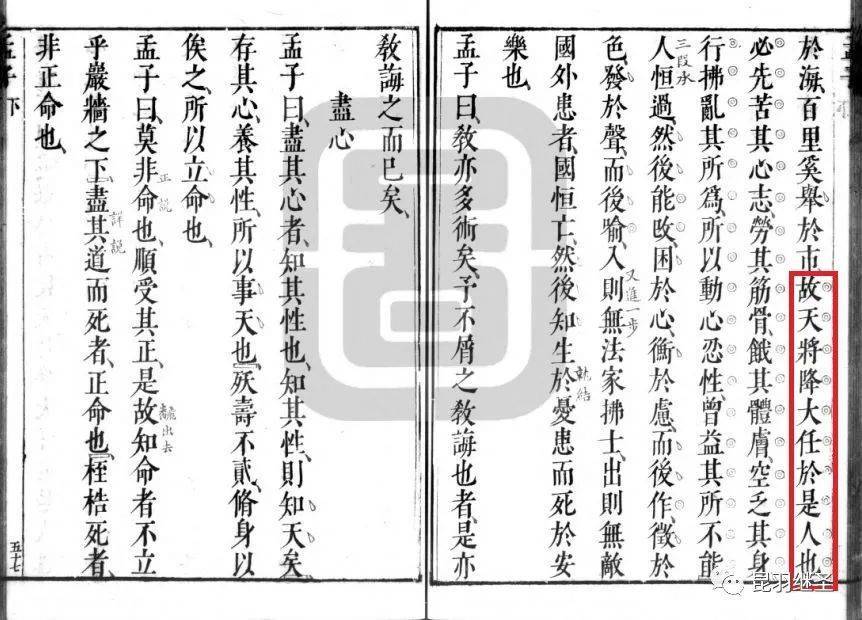 於海、百里奚舉於市、故天將降大任於是人也
必先苦其心志、勞其筋骨、餓其體膚、空乏其身
行拂亂其所爲、所以動心忍性、曾益其所不能
三段承
人恒過、然後能改、困於心、衡於慮、而後作、徵於
色、發於聲、而後喻、入則無法家拂士、出則無敵
又進一步
國外患者、國恒亡、然後知生於憂患而死於安
就結
樂也、
孟子曰、敎亦多術矣、予不屑之敎誨也者、是亦
敎誨之而已矣、
盡心
孟子曰、盡其心者、知其性也、知其性、則知天矣
存其心、養其性、所以事天也、殀壽不貳、脩身以
俟之、所以立命也、
孟子曰、莫非命也、順受其正、是故知命者不立
正說
乎巖牆之下、盡其道而死者、正命也、桎梏死者、
詳說
非正命也、
孟子下
五十七
昆羽继圣